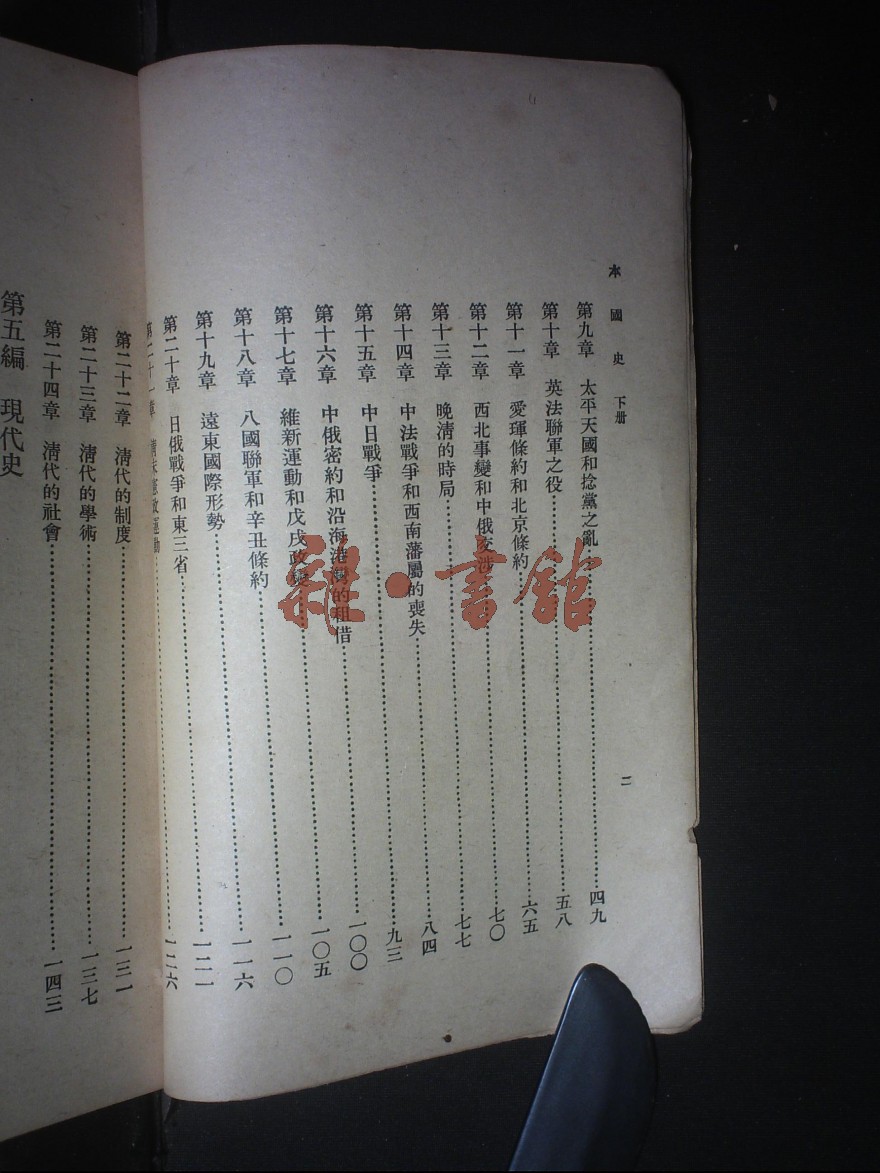 本國史 下册
二
第九章 太平天國和捻黨之亂……四九
第十章 英法聯軍之役……五八
第十一章 愛琿條約和北京條約……六五
第十二章 西北事變和中俄交涉……七〇
第十三章 晚清的時局……七七
第十四章 中法戰爭和西南藩屬的喪失……八四
第十五章 中日戰爭……九三
第十六章 中俄密約和沿海港灣的租借……一〇〇
第十七章 維新運動和戊戌政變……一〇五
第十八章 八國聯軍和辛丑條約……一一〇
第十九章 遠東國際形勢……一一六
第二十章 日俄戰爭和東三省……一二一
第二十一章 清末憲政運動……一二六
第二十二章 清代的制度……一三一
第二十三章 清代的學術……一三七
第二十四章 清代的社會……一四三
第五編 現代史
雜·書館